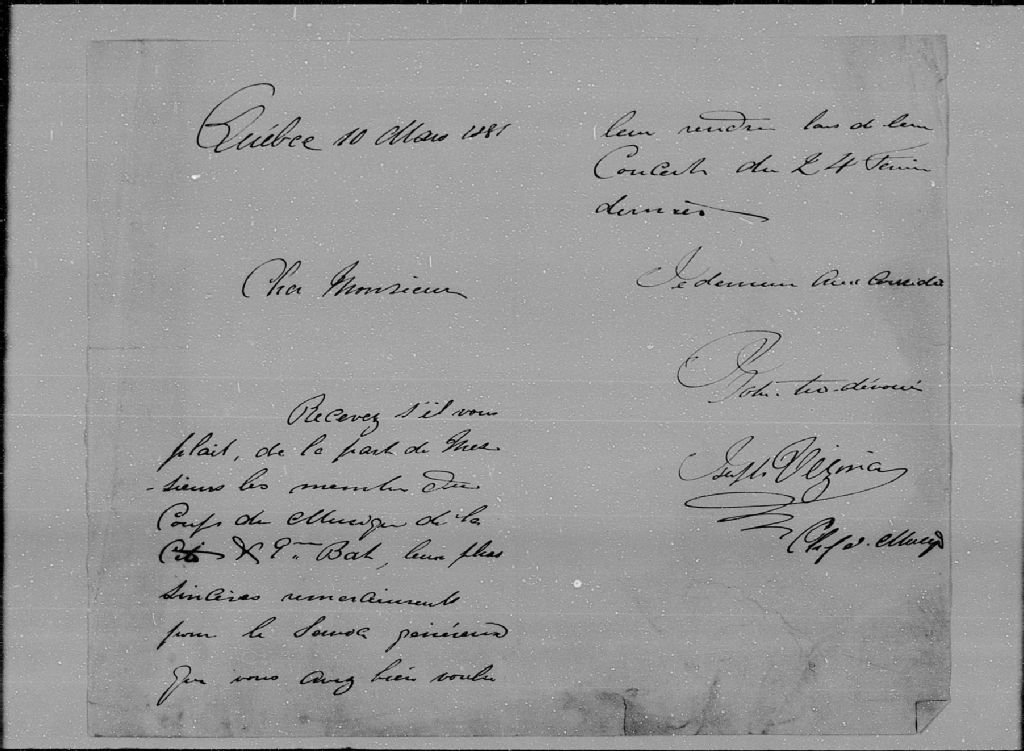 Québec 10 Mars 1881
Cher Monsieur
Recevez s'il vous
plait, de la part de Mes
-sieurs les membres du
Corps de Musique de la
9me Bat, leurs plus
sincères remerciements
pour le service généreux
que vous avez bien voulu
leur rendre lors de leur
Concert du 24 Février
dernier
Je demeure avec considé
Votre très dévoué
Joseph Vézina
Chef de Musiq